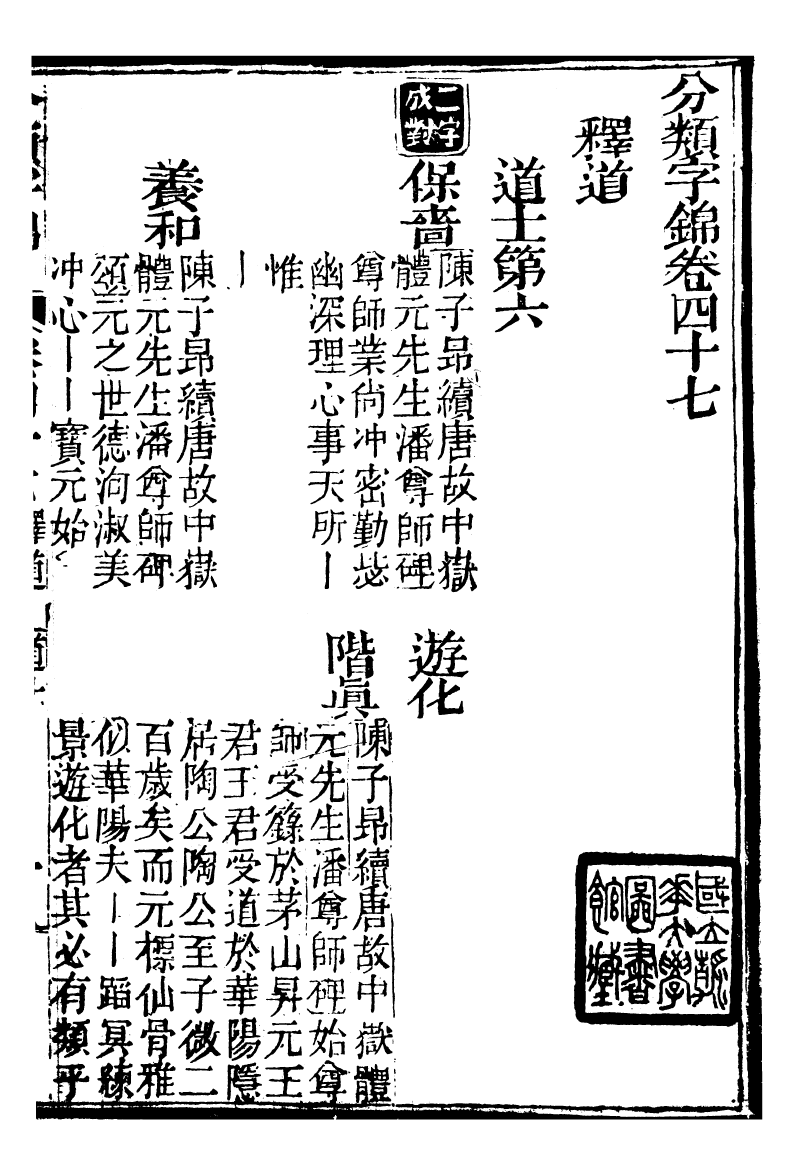 分類字錦卷四十七
釋道
道士第六
二字成對
保嗇
陳子昻續唐故中嶽
體元先生潘尊師碑
尊師業尙冲密勤毖
幽深理心事天所丨
惟
丨
遊化
養和
陳子昻續唐故中嶽
體元先生潘尊師碑
頌元之世德洵淑美
冲心丨丨寶元始
階眞
陳子昻續唐故中嶽體
元先生潘尊師碑始尊
師受籙於茅山昇元王
君王君受道於華陽隱
居陶公陶公至子微二
百歲矣而元標仙骨雅
似華陽夫丨丨蹈冥練
景遊化者其必有類乎
國立
大學
圖書
館藏